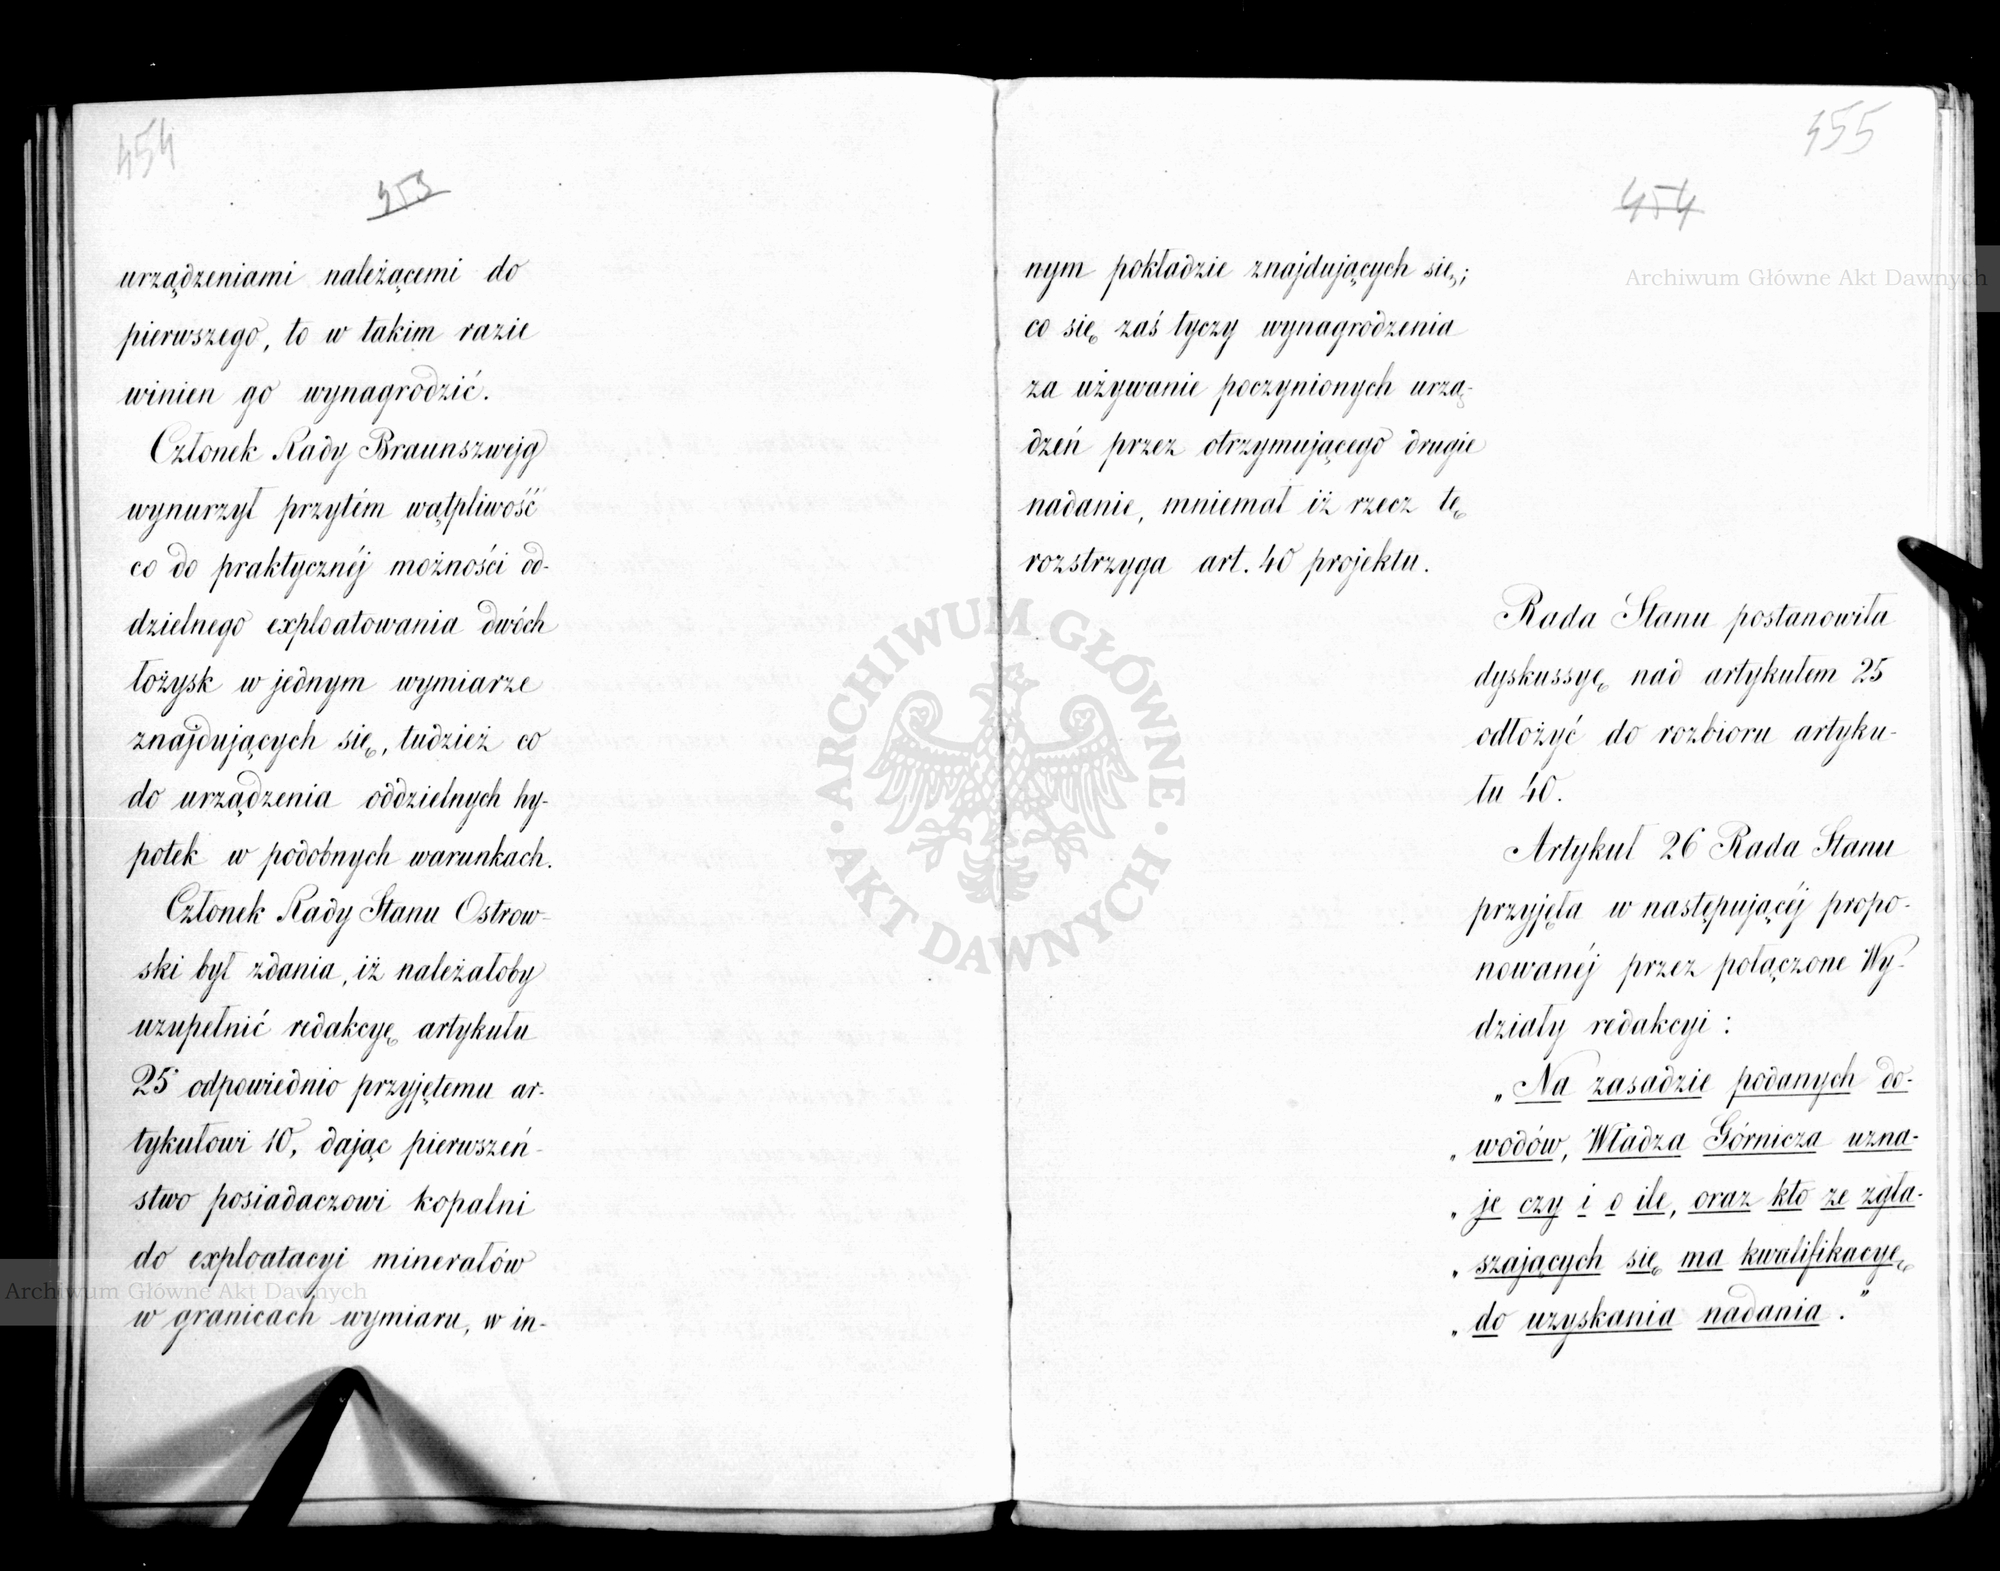 454
453
urządzeniami należącemi do
pierwszego, to w takim razie
winien go wynagrodzić.
Członek Rady Braunszwejg
wynurzył przytém wątpliwość
co do praktycznéj możności od-
dzielnego exploatowania dwóch
łożysk w jednym wymiarze
znajdujących się, tudzież co
do urządzenia oddzielnych hy-
potek w podobnych warunkach.
Członek Rady Stanu Ostrow-
ski był zdania, iż należałoby
uzupełnić redakcyę artykułu
25 odpowiednio przyjętemu ar-
tykułowi 10, dając pierwszeń-
stwo posiadaczowi kopalni
do exploatacyi minerałów
w granicach wymiaru, w in-
455
454
nym pokładzie znajdujących się;
co się zaś tyczy wynagrodzenia
za używanie poczynionych urzą-
dzeń przez otrzymującego drugie
nadanie, mniemał iż rzecz tę
rozstrzyga art. 40 projektu.
Rada Stanu postanowiła
dyskussyę nad artykułem 25
odłożyć do rozbioru artyku-
łu 40.
Artykuł 26 Rada Stanu
przyjęła w następującéj propo-
nowanéj przez połączone Wy-
działy redakcyi:
„Na zasadzie podanych do-
„wodów, Władza Górnicza uzna-
„je czy i o ile, oraz kto ze zgła-
„szających się ma kwalifikacyę
„do uzyskania nadania."
Archiwum Główne Akt Dawnych
Archiwum Główne Akt Dawnych
ARCHIWUM GŁÓWNE
· AKT DAWNYCH ·